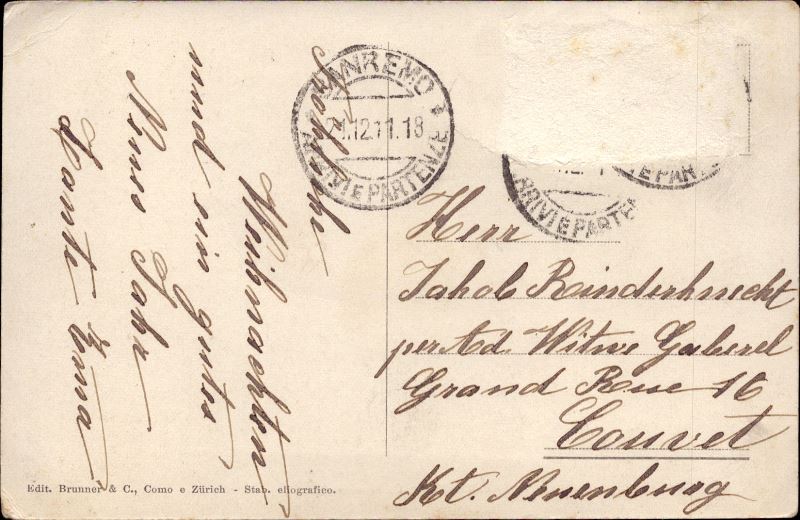 Fröhliche
Weihnachten
und ein gutes
Neues Jahr
Tante Anna
SANREMO
21.12.11.18
ARRIVI E PARTENZE
ARRIVI E PARTEN
E PART
Herr
Jakob Rinderknecht
per Ad. Witwe Gaberel
Grand Rue 16
Couvet
Kt. Neuenburg
Edit. Brunner & C., Como e Zürich - Stab. eliografico.